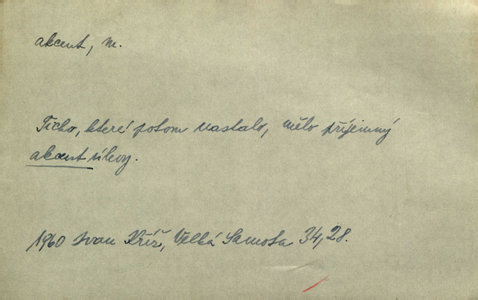 akcent, m.
Ticho, které potom nastalo, mělo příjemný
akcent úlevy.
1960 Ivan Kříž, Velká Samota 34, 28.